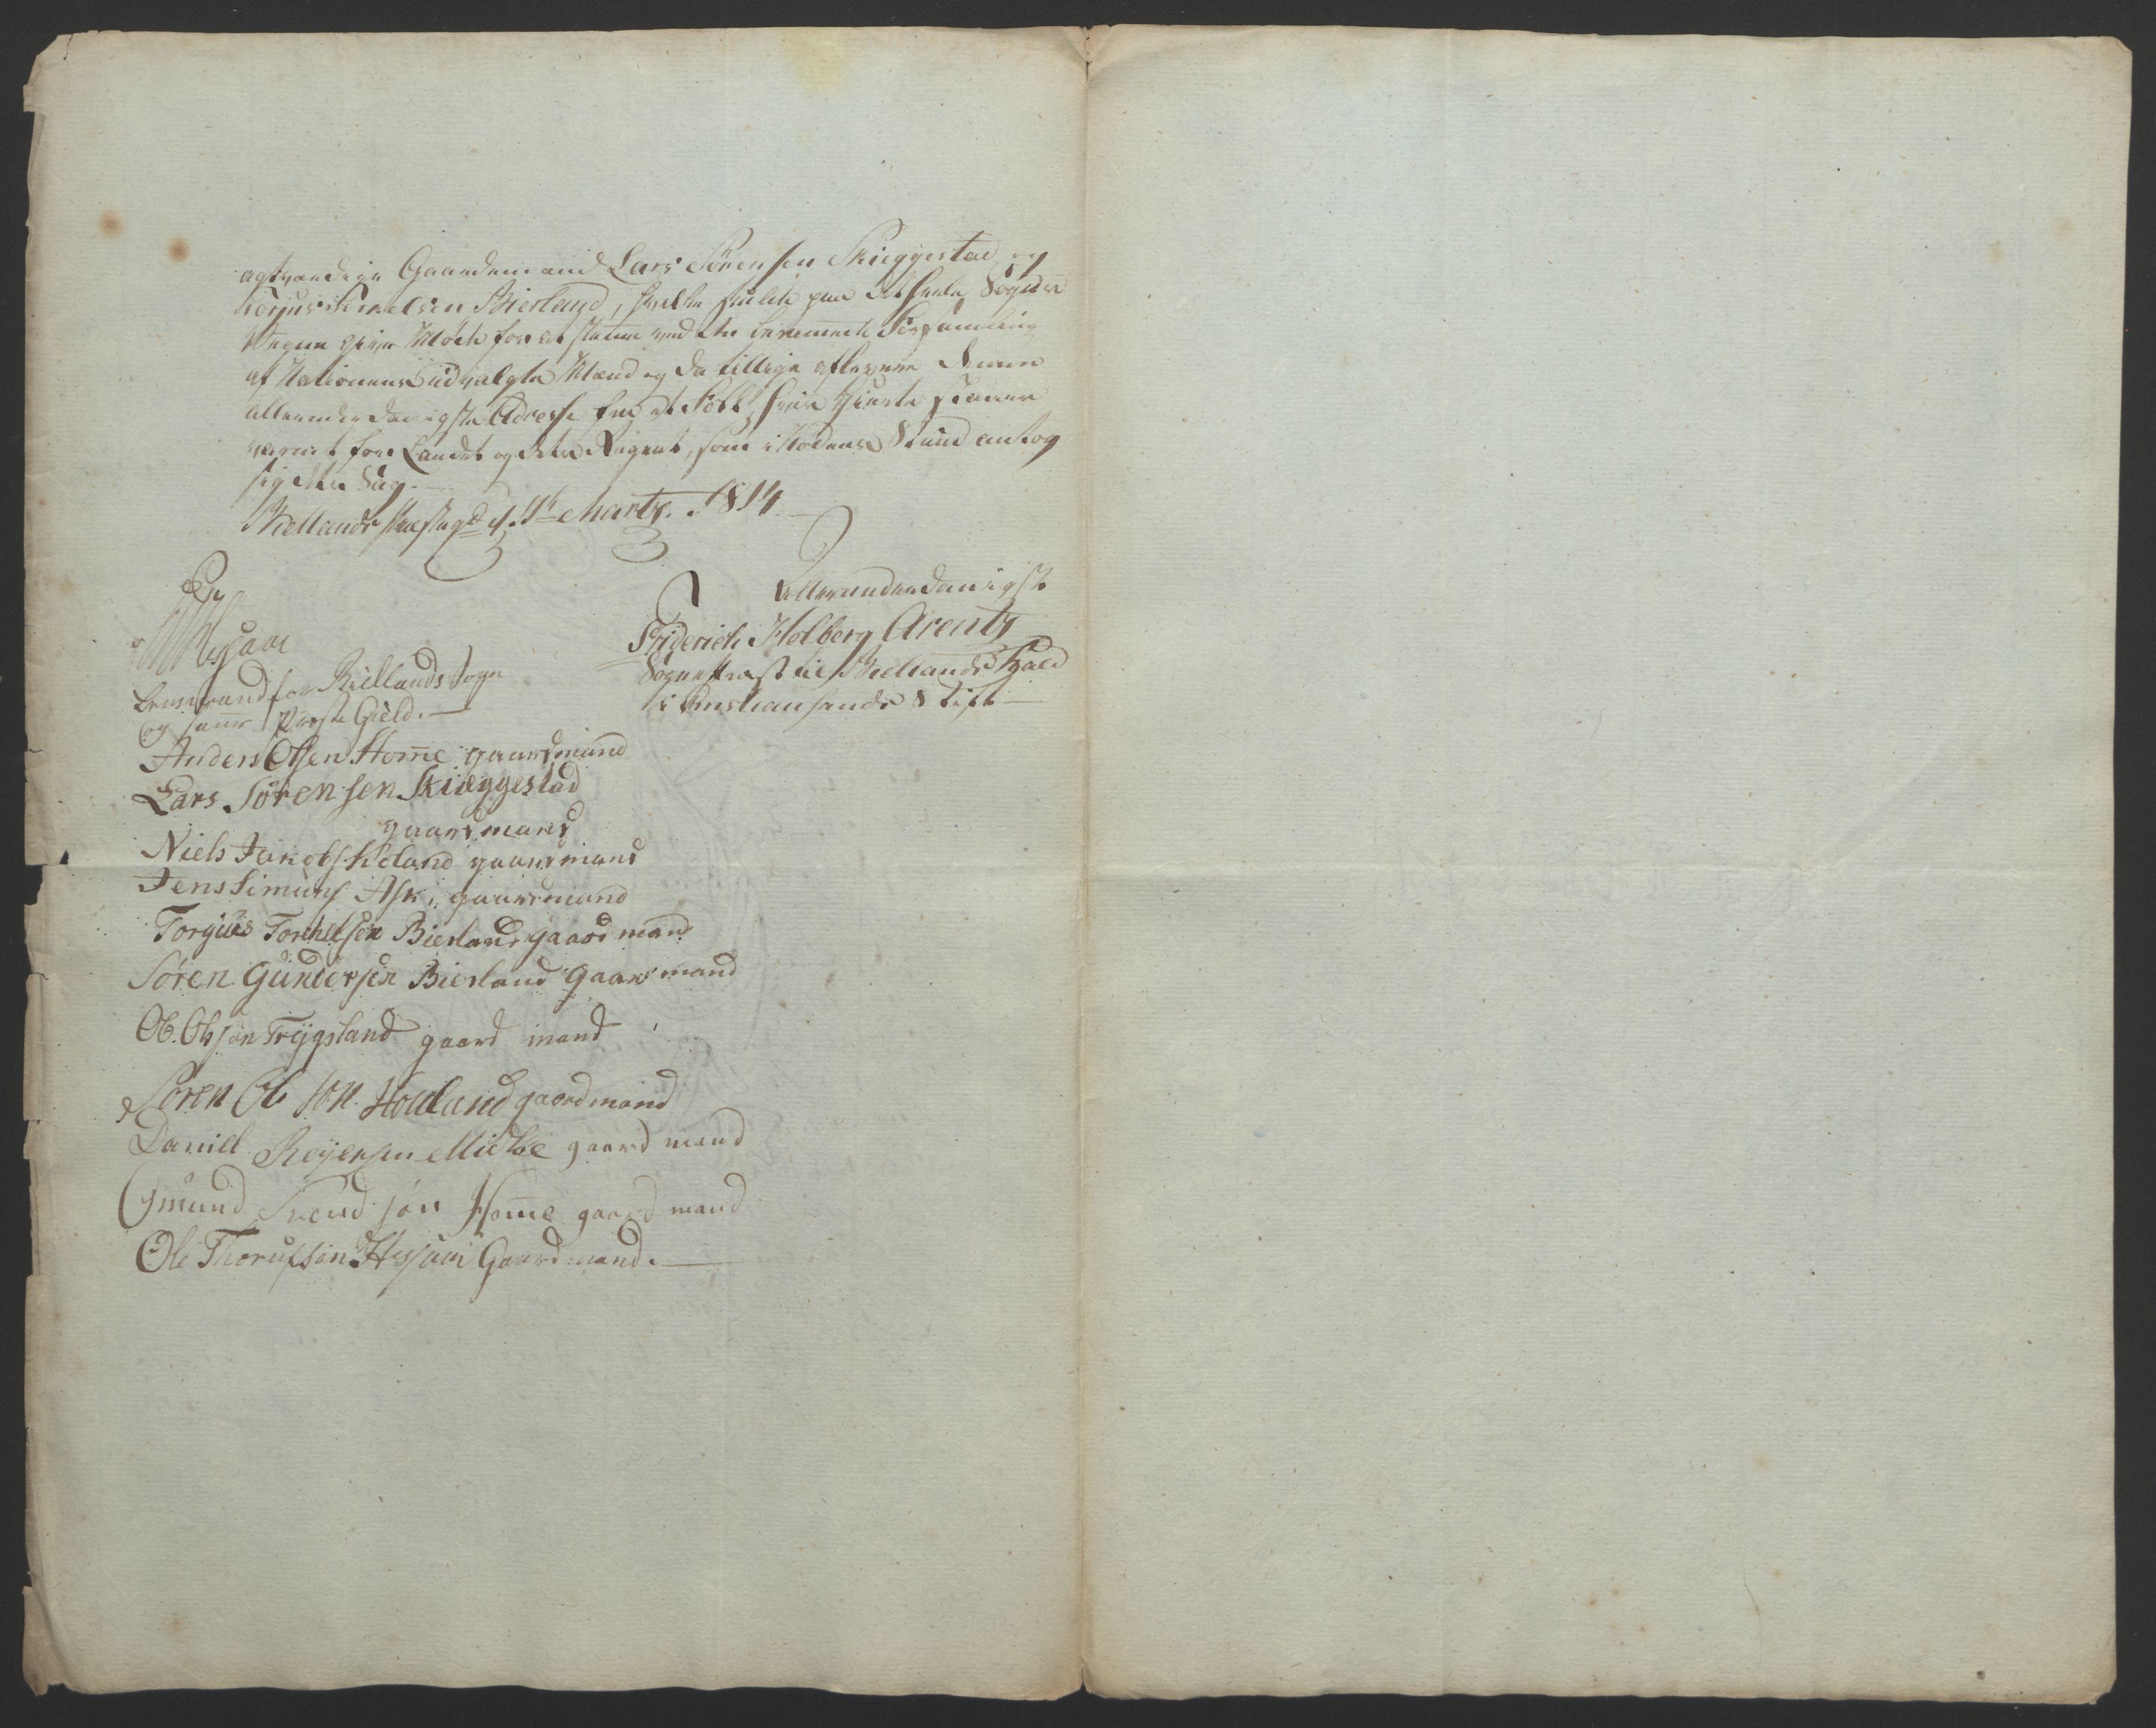 agtværdige Gaardemænd Lars Sörensen Skieggestad og
Torjus Torkelsen Bierland, hvilke paa det heele Sogns
Vegne give Møde for at stemme ved den berammede Forsamling
af Nationens udvalgte Mænd og da tillige aflevere denne
allerunderdanigste Adresse fra et Folk, hvis Hierte
varmt for Landet og dets Regent, som i Nödens Stund antog
sig dets Sag.
Biellands Præstegd d. 11t Marty 1814
Allerunderdanigst
Friderich Holberg Arentz
Sognepræst til Biellands Giæld
i Christiansands Stift
Hesaae
Lensmand for Biellands Sogn
og samme Præste Gield.
Anders Olsen Home gaardmand
Lars Sörensen Skieggestad
gaardmand
Niels Jakobs. Heland gaardmand
Jens Simuns Ask, gaardmand
Torgiüs Torkelsen Bierland gaard mand
Sören Gundersen Bierland Gaardmand
Ole Olssön Trygsland gaard mand
Sören Ole sön Houland gaardmand
Daniel Reyersen Mietbøe gaard mand
Gmund Svend sön Home gaard mand
Ole Thorufsön Hesaae Gaardmand.